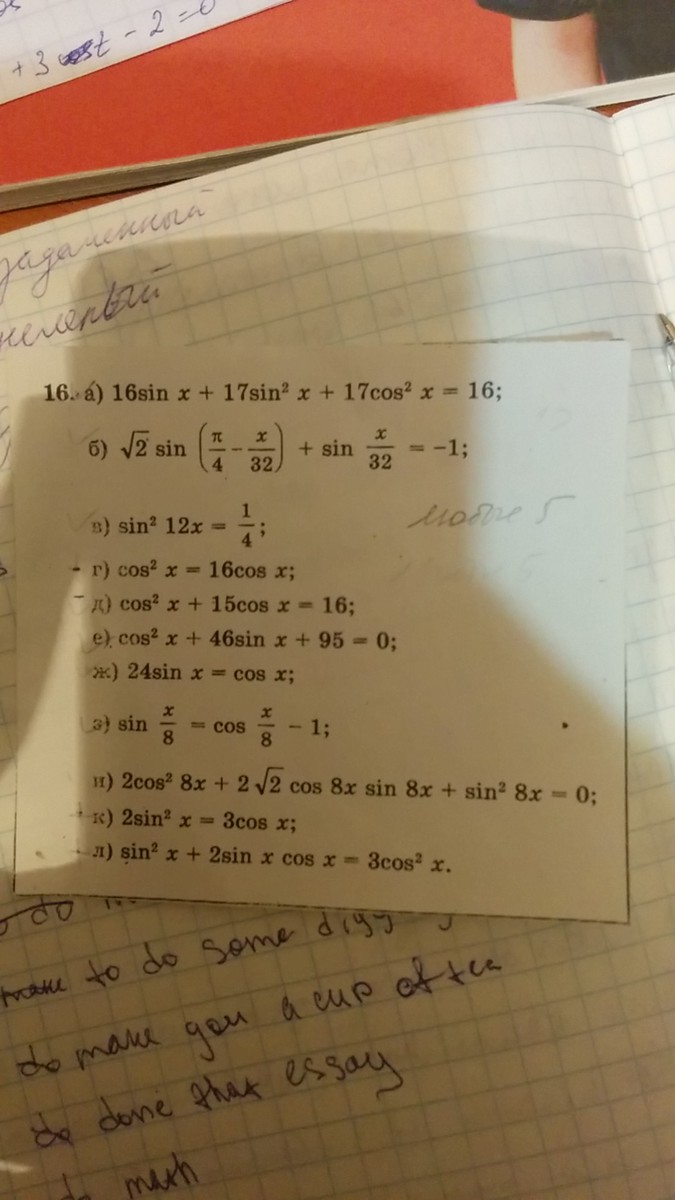 + 3 cos t - 2 = 0
16. а) 16sin x + 17sin² x + 17cos² x = 16;
б) √2 sin (π/4 − x/32) + sin x/32 = −1;
в) sin² 12x = 1/4;
любые 5
г) cos² x = 16cos x;
д) cos² x + 15cos x = 16;
е) cos² x + 46sin x + 95 = 0;
ж) 24sin x = cos x;
з) sin x/8 = cos x/8 − 1;
и) 2cos² 8x + 2√2 cos 8x sin 8x + sin² 8x = 0;
к) 2sin² x = 3cos x;
л) sin² x + 2sin x cos x = 3cos² x.
to do some
do make you a cup of tea
do done that essay
do